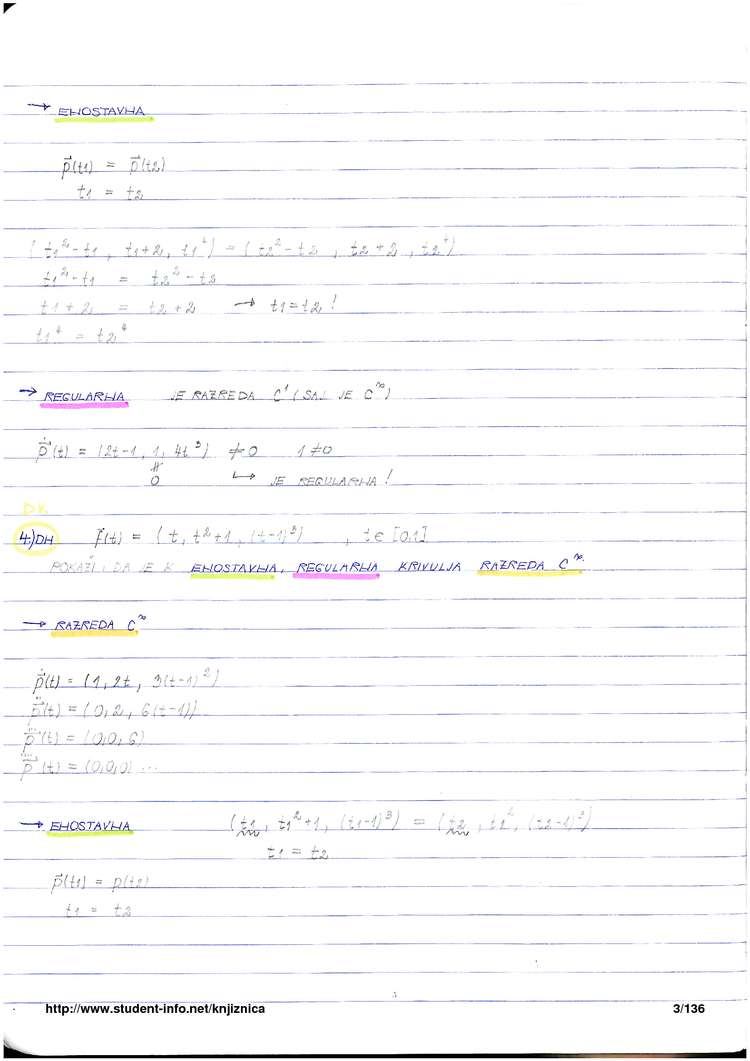 → ENOSTAVNA
p⃗(t1) = p⃗(t2)
t1 = t2
(t1²-t1, t1+2, t1⁴) = (t2²-t2, t2+2, t2⁴)
t1²-t1 = t2²-t2
t1+2 = t2+2 → t1=t2!
t1⁴ = t2⁴
→ REGULARNA JE RAZREDA C¹ (SAJ JE C^∞)
ṗ⃗(t) = (2t-1, 1, 4t³) ≠0 1≠0
∦
0 ↳ JE REGULARNA!
D.N.
4.)DN r⃗(t) = (t, t²+1, (t-1)³), t∈[0,1]
POKAŽI, DA JE K ENOSTAVNA, REGULARNA KRIVULJA RAZREDA C^∞.
→ RAZREDA C^∞
ṗ⃗(t) = (1, 2t, 3(t-1)²)
p̈⃗(t) = (0, 2, 6(t-1))
p⃛(t) = (0,0,6)
p⃜(t) = (0,0,0) ...
→ ENOSTAVNA (t1, t1²+1, (t1-1)³) = (t2, t1², (t2-1)³)
t1 = t2
p⃗(t1) = p(t2)
t1 = t2
http://www.student-info.net/knjiznica 3/136